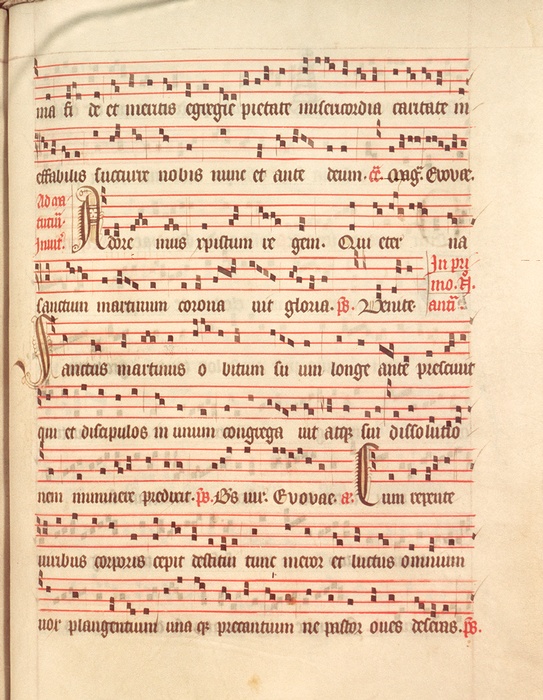 ma fi de et meritis egregie pietate misericordia caritate in
effabilis succurre nobis nunc et ante deum. Evovae.
Adore mus xpistum re gem. Qui eter na
sanctum martinum corona vit gloria. ps. Venite. In pri mo. antiâ.
Sanctus martinus o bitum su um longe ante prescivit
qui et discipulos in unum congrega vit atqꝫ sui dissolutio
nem imminere predixit. ps. Bs vir. Evovae. a. Cum repente
viribus corporis cepit destitui tunc meror et luctus omnium
vox plangentium una qꝫ precantium ne pastor oves deseras. ps.